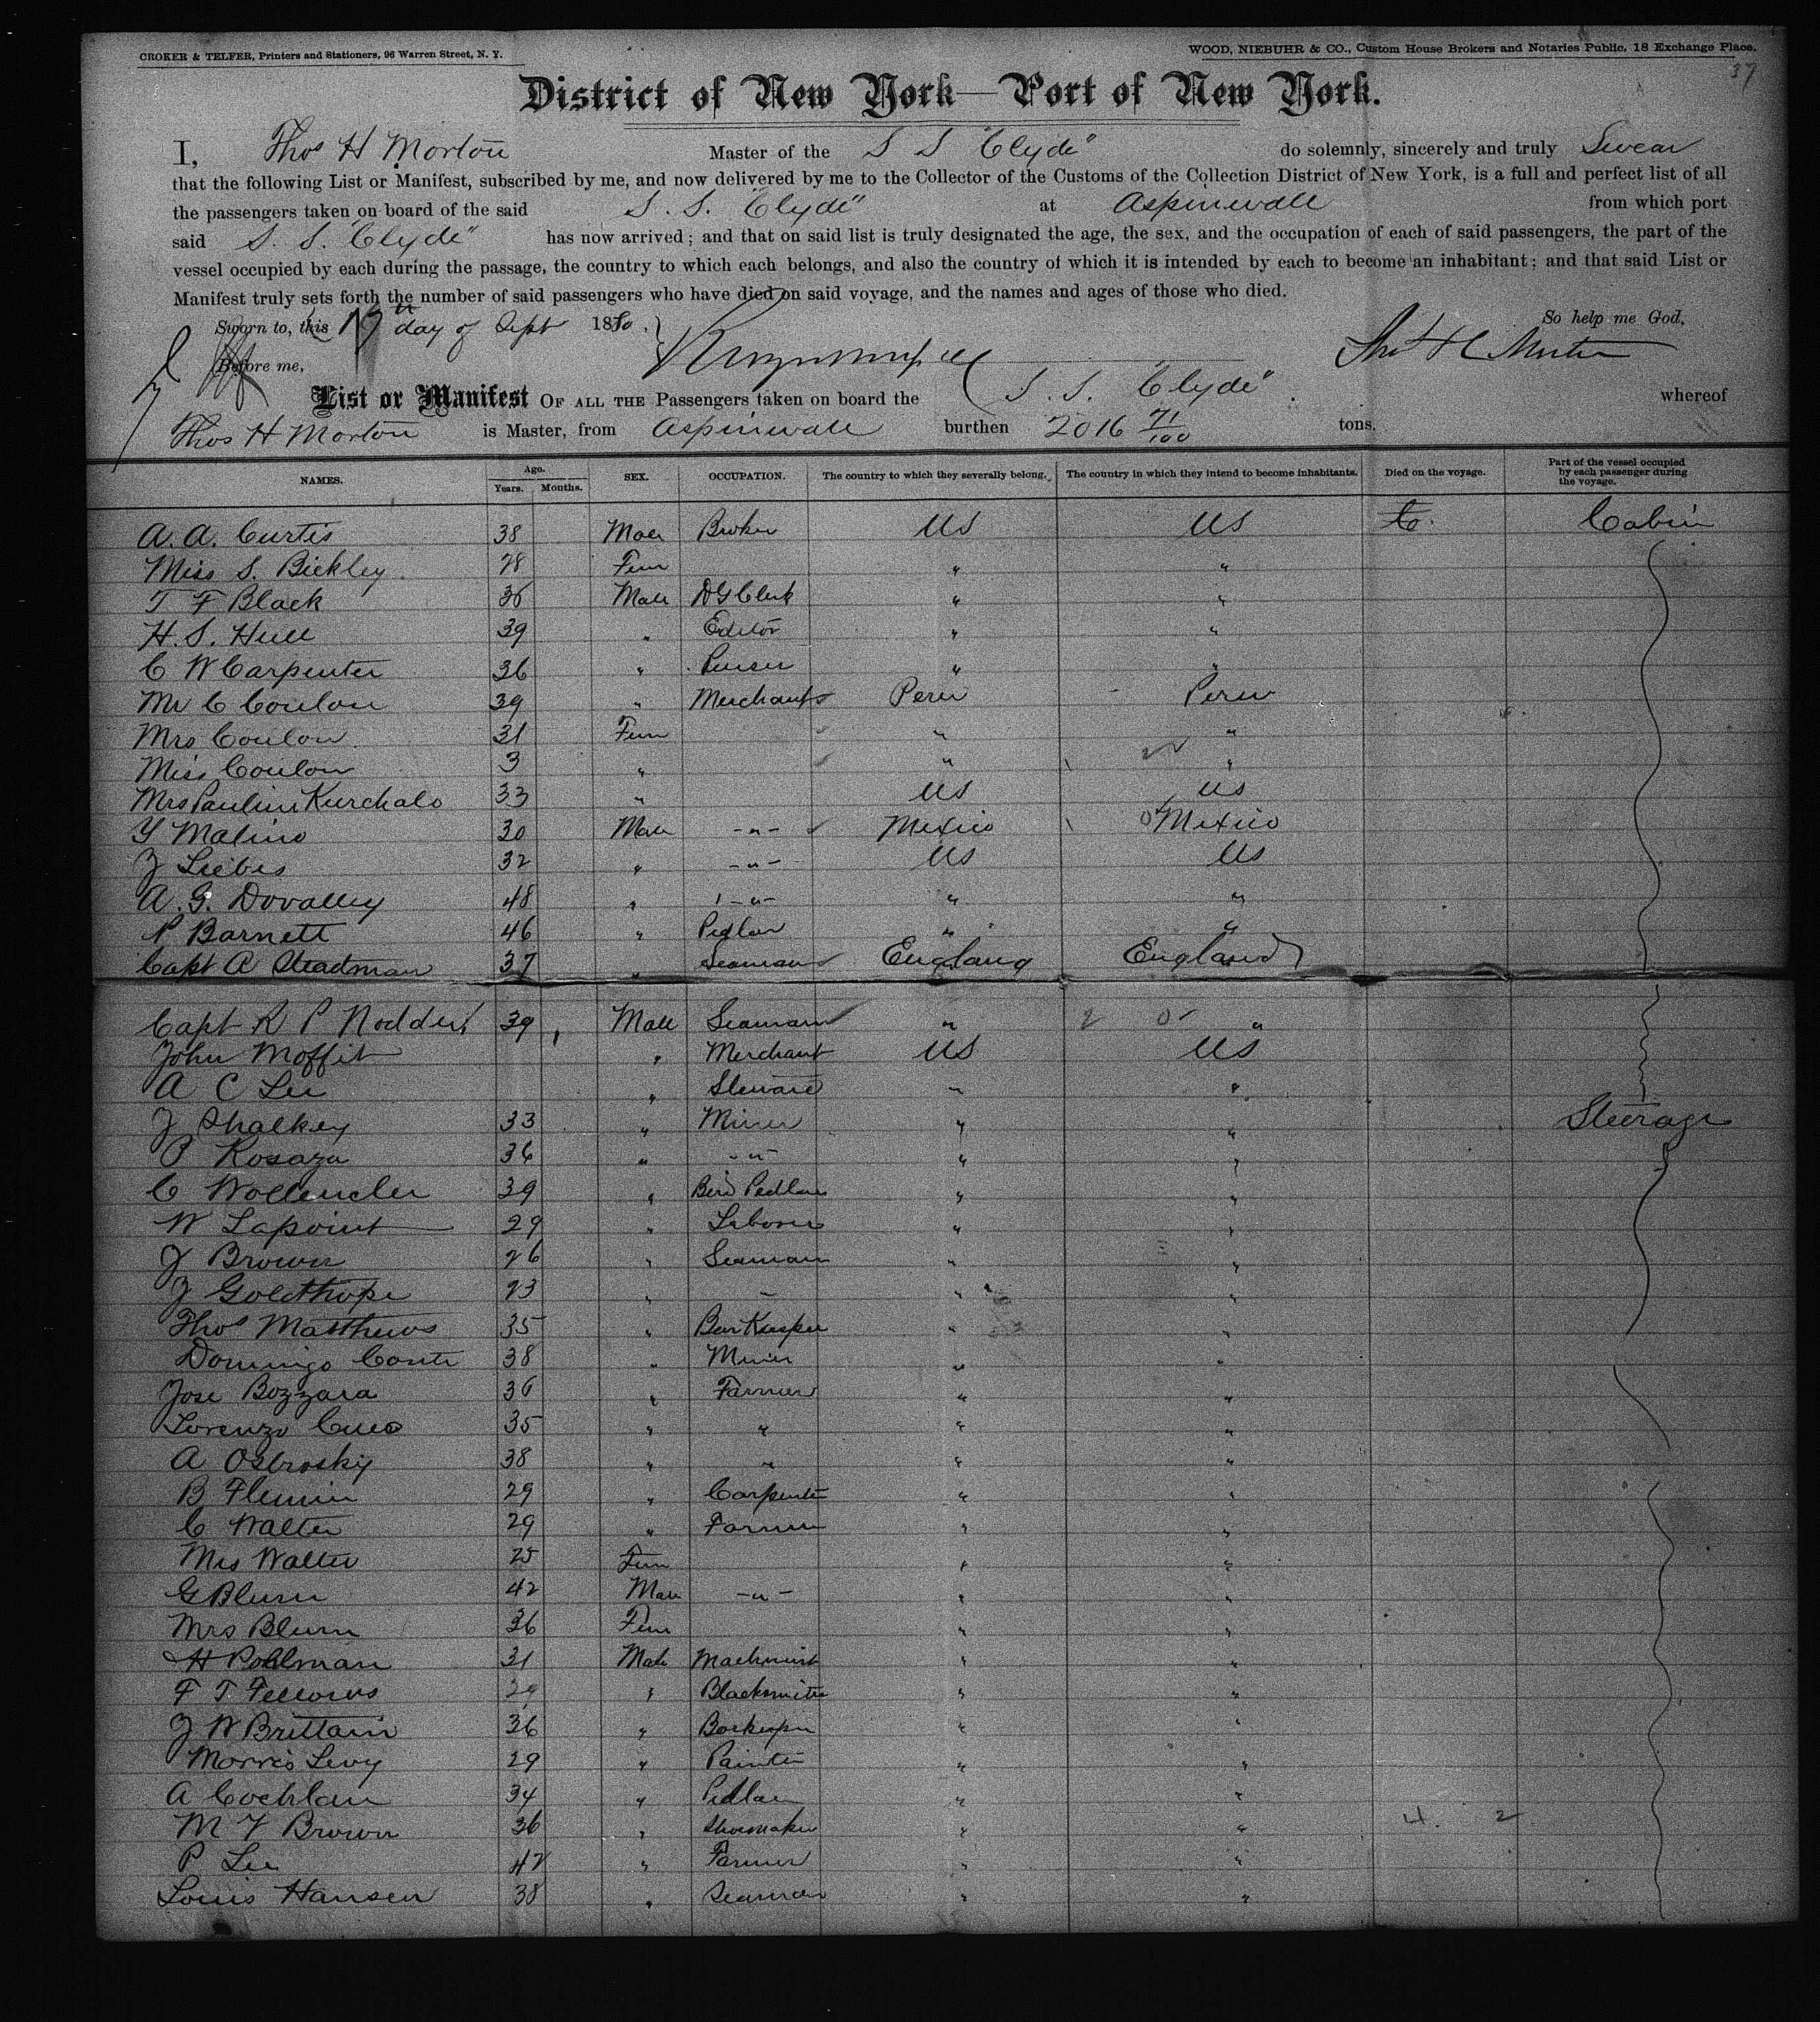 CROKER & TELFER, Printers and Stationers, 96 Warren Street, N. Y.
WOOD, NIEBUHR & CO., Custom House Brokers and Notaries Public, 18 Exchange Place.
37
District of New York—Port of New York.
I, Thos H Morton Master of the S S "Clyde" do solemnly, sincerely and truly Swear
that the following List or Manifest, subscribed by me, and now delivered by me to the Collector of the Customs of the Collection District of New York, is a full and perfect list of all
the passengers taken on board of the said S. S. "Clyde" at Aspinwall from which port
said S. S. "Clyde" has now arrived; and that on said list is truly designated the age, the sex, and the occupation of each of said passengers, the part of the
vessel occupied by each during the passage, the country to which each belongs, and also the country of which it is intended by each to become an inhabitant; and that said List or
Manifest truly sets forth the number of said passengers who have died on said voyage, and the names and ages of those who died.
Sworn to, this 17th day of Sept 1880. So help me God,
Before me, Thos H Morton
List or Manifest OF ALL THE Passengers taken on board the S. S. "Clyde" whereof
Thos H Morton is Master, from Aspinwall burthen 2016 71/100 tons.
NAMES. Age. Years. Months. SEX. OCCUPATION. The country to which they severally belong. The country in which they intend to become inhabitants. Died on the voyage. Part of the vessel occupied by each passenger during the voyage.
A. A. Curtis 38 Male Broker US US Cabin
Miss S. Bickley 28 Fem " "
T F Black 36 Male D G Clerk " "
H. S. Hull 39 " Editor " "
C W Carpenter 36 " Purser " "
Mr C Coulon 39 " Merchant Peru Peru
Mrs Coulon 31 Fem " "
Miss Coulon 3 " " "
Mrs Paulin Kurchalo 33 " US US
Y Malino 30 Male -"- Mexico Mexico
J Liebes 32 " -"- US US
A. G. Dovalley 48 " -"- " "
P Barnett 46 " Pedlar " "
Capt A Steadman 37 " Seaman England England
Capt R P Nodder 39 Male Seaman " "
John Moffit " Merchant US US
A C Lee " Steward " "
J Shalkey 33 " Miner " " Steerage
P Rosaza 36 " -"- " "
C Wollender 39 " Bird Pedlar " "
W Lapoint 29 " Laborer " "
J Brown 26 " Seaman " "
J Goldthope 23 " " " "
Thos Matthews 35 " Bar Keeper " "
Domingo Conti 38 " Miner " "
Jose Bozzara 36 " Farmer " "
Lorenzo Cueo 35 " " " "
A Osbrosky 38 " " " "
B Flemin 29 " Carpenter " "
C Walter 29 " Farmer " "
Mrs Walter 25 Fem " "
G Blum 42 Male -"- " "
Mrs Blum 36 Fem " "
H Pohlman 31 Male Machinist " "
F T Fellows 29 " Blacksmith " "
J W Brittain 36 " Barkeeper " "
Morris Levy 29 " Painter " "
A Cochlan 34 " Pedlar " "
M F Brown 36 " Shoemaker " "
P Lee 42 " Farmer " "
Louis Hansen 38 " Seaman " "